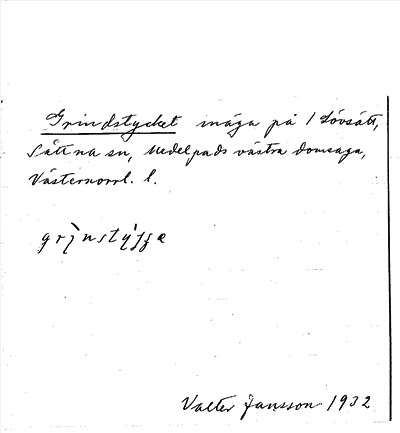 Grindstycket mäga på 1 Lövsätt,
Sättna sn, Medelpads västra domsaga,
Västernorrl. l.
grìnstýjjæ
Valter Jansson 1932